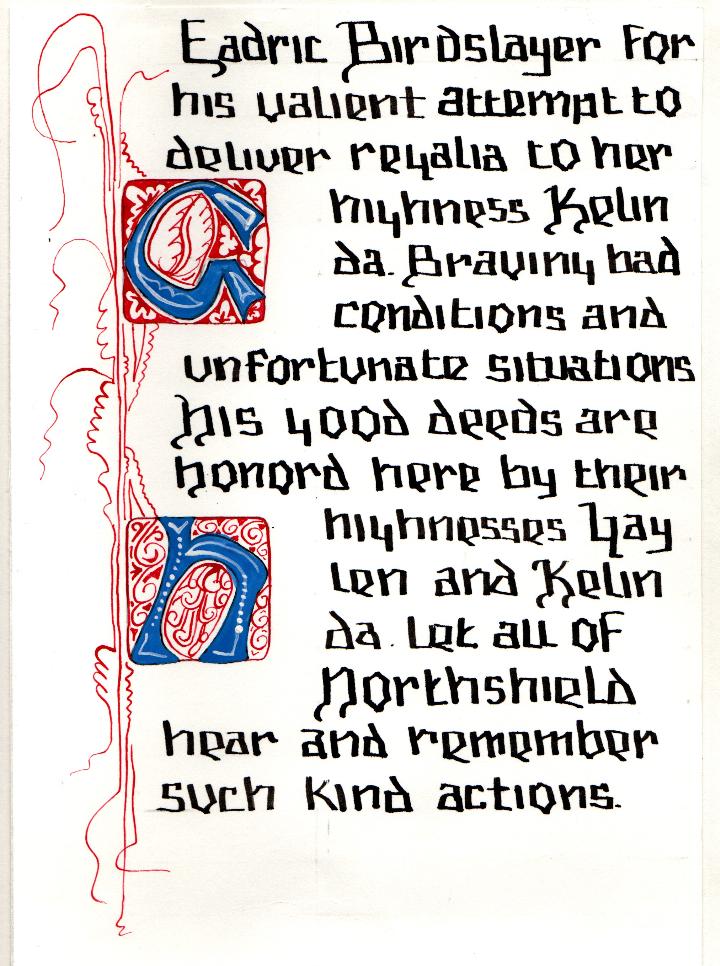 Eadric Birdslayer for
his valient attempt to
deliver regalia to her
G
highness Kelin
da. Braving bad
conditions and
unfortunate situations
his good deeds are
honord here by their
h
highnesses Gay
len and Kelin
da. Let all of
Northshield
hear and remember
such kind actions.